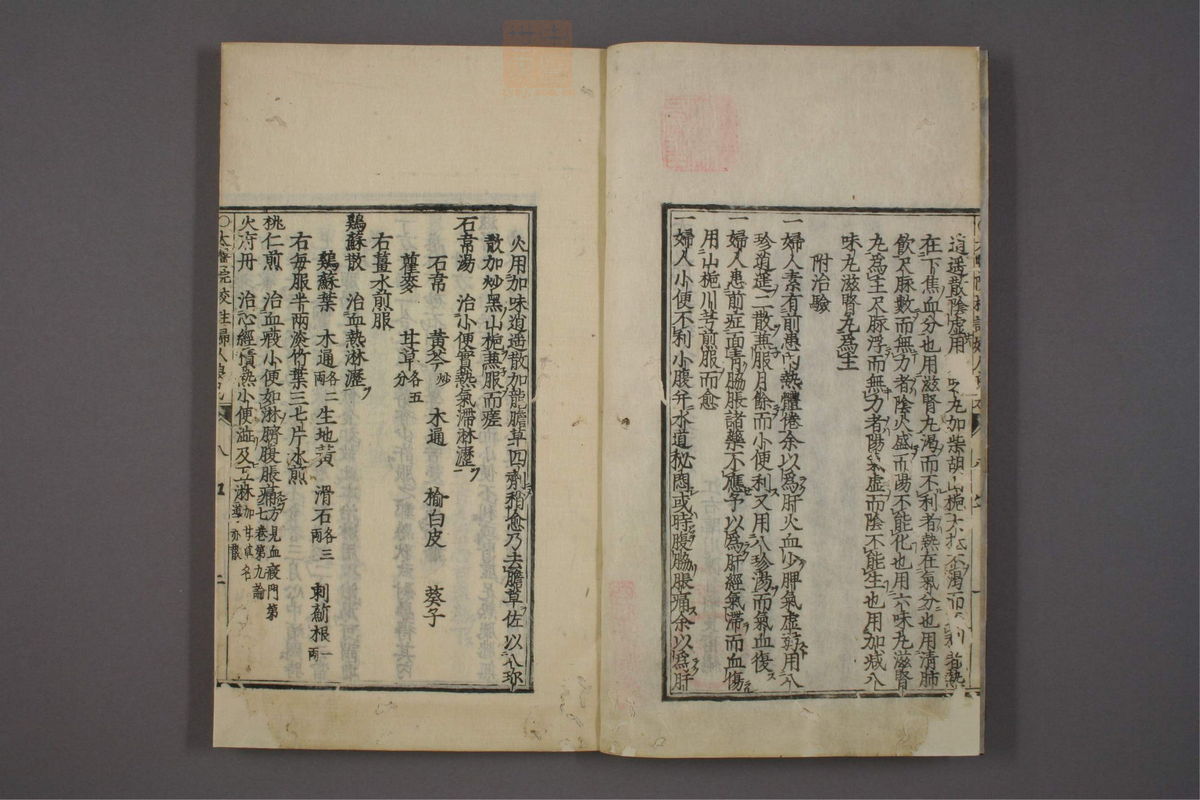 逍遥散陰虚用 味丸加柴胡山梔大抵不渇而 利者熱
在下焦血分也用滋腎丸渇而不利者熱在氣分也用清肺
飲尺脉數而無力者陰火盛而陽不能化也用六味丸滋腎
丸爲主尺脉浮而無力者陽氣虚而陰不能生也用加减八
味丸滋腎丸爲主
附治驗
一婦人素有前患内熱體倦余以爲肝火血少脾氣虚弱用八
珍逍遥二散兼服月餘而小便利又用八珍湯而氣血復
一婦人患前症面青脇脹諸藥不應予以爲肝經氣滯而血傷
用山梔川芎煎服而愈
一婦人小便不利小腹并水道秘悶或時腹脇脹痛余以爲肝
火用加味逍遥散加龍膽草四劑稍愈乃去膽草佐以八珍
散加炒黑山梔兼服而瘥
石韋湯 治小便實熱氣滯淋瀝
石韋 黄芩炒 木通 榆白皮 葵子
瞿麥 甘草各五分
右薑水煎服
鷄蘇散 治血熱淋瀝
鷄蘇葉 木通各二兩 生地黄 滑石各三兩 刺薊根一兩
右每服半兩淡竹葉三七片水煎
桃仁煎 治血瘕小便如淋臍腹脹痛方見血瘕門第七卷第九論
火府丹 治心經積熱小便澁及五淋加甘草名導赤散
〇太醫院校註婦人良 八